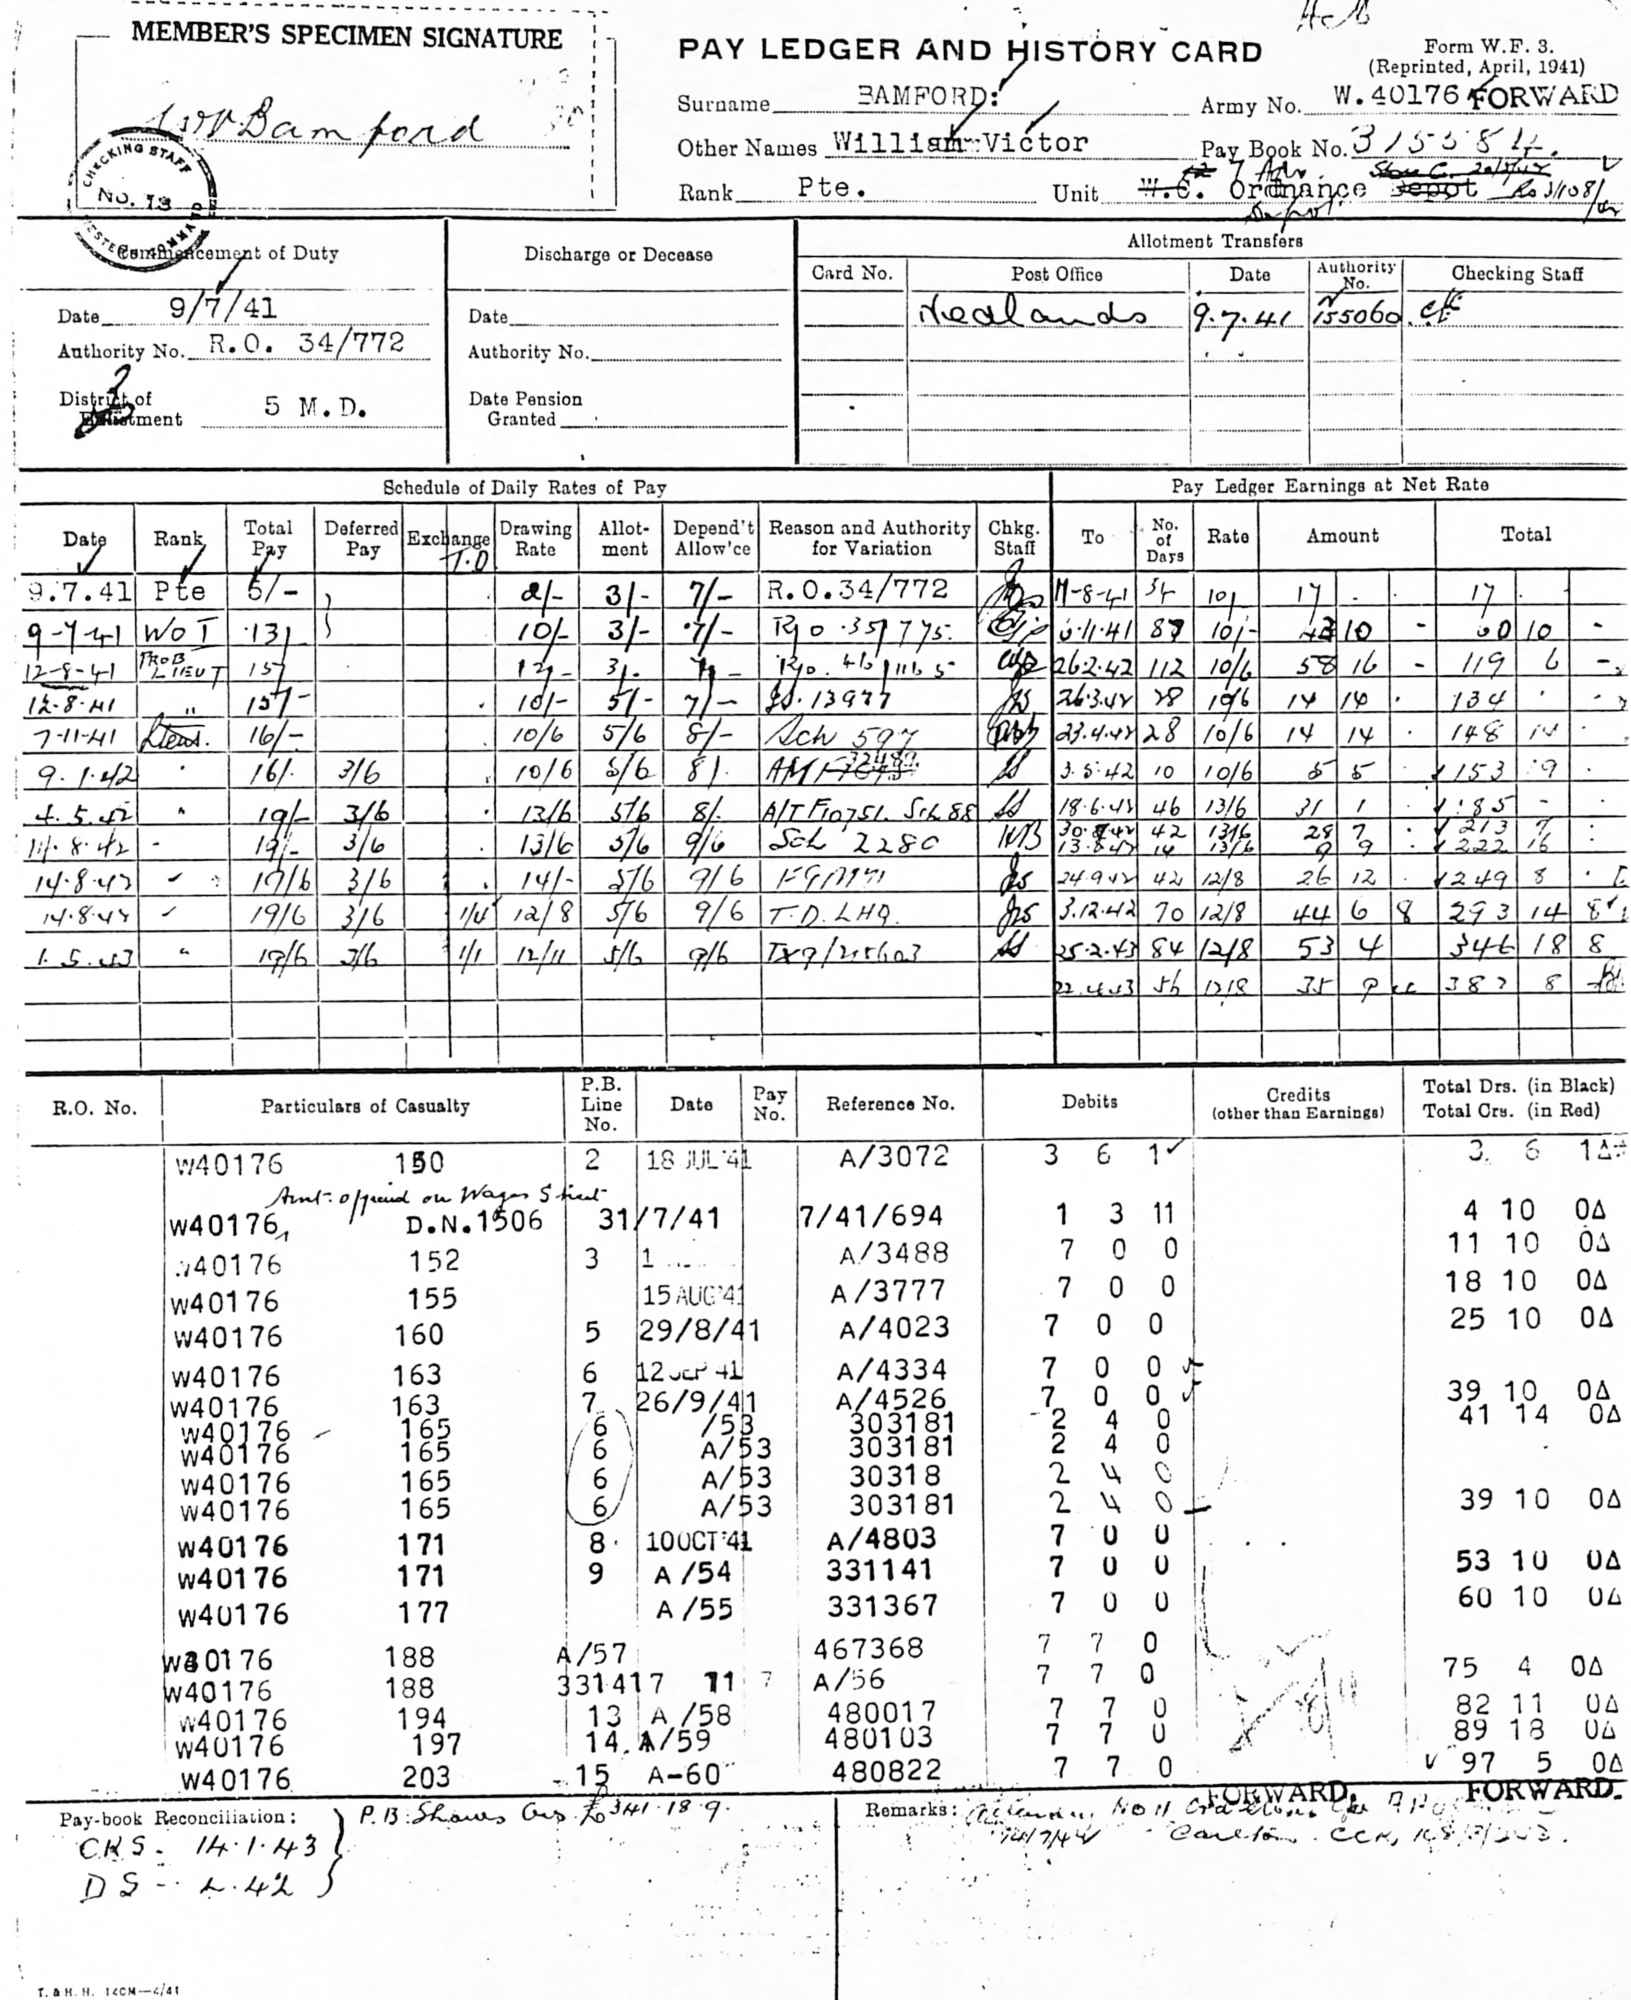 MEMBER'S SPECIMEN SIGNATURE
WVBamford
CHECKING STAFF
No. 13
WESTERN COMMAND
PAY LEDGER AND HISTORY CARD
Form W.F. 3.
(Reprinted, April, 1941)
Surname BAMFORD:
Army No. W.40176 FORWARD
Other Names William Victor
Pay Book No. 315581
Rank Pte.
Unit W.C. Ordnance Depot
Commencement of Duty
Date 9/7/41
Authority No. R.O. 34/772
District of
Enlistment 5 M.D.
Discharge or Decease
Date
Authority No.
Date Pension
Granted
Allotment Transfers
Card No. Post Office Date Authority No. Checking Staff
Nedlands 9.7.41 155060
Schedule of Daily Rates of Pay
Pay Ledger Earnings at Net Rate
Date Rank Total Pay Deferred Pay Exchange T.O Drawing Rate Allotment Depend't Allow'ce Reason and Authority for Variation Chkg. Staff To No. of Days Rate Amount Total
9.7.41 Pte 5/- 2/- 3/- 7/- R.O.34/772 -8-41 34 10/ 17 17
9-7-41 WO I 13/ 10/- 3/- 7/- R/o 35/775 .11.41 87 10/- 43 10 - 60 10 -
12-8-41 PROB LIEUT 15/ 12/- 3/- 7/- 26.2.42 112 10/6 58 16 - 119 6 -
12.8.41 " 15/- 10/- 5/- 7/- 13977 26.3.42 28 10/6 14 14 134
7-11-41 Lieut. 16/- 10/6 5/6 8/- Sch 597 23.4.42 28 10/6 14 14 148 14
9.1.42 " 16/- 3/6 10/6 5/6 8/- 3.5.42 10 10/6 5 5 153 19
4.5.42 " 19/- 3/6 13/6 5/6 8/- A/T F10751 Sch 88 18.6.42 46 13/6 31 1 185 -
.8.42 - 19/- 3/6 13/6 5/6 9/6 Sch 2280 30.7.42 42 13/6 28 7 213 7
13.8.42 14 13/6 9 9 222 16
14.8.42 19/6 3/6 14/- 5/6 9/6 24.9.42 42 12/8 26 12 249 8
14.8.42 19/6 3/6 1/4 12/8 5/6 9/6 T.D. LHQ. 3.12.42 70 12/8 44 6 8 293 14 8
1.5.43 " 19/6 3/6 1/1 12/11 5/6 9/6 25.2.43 84 12/8 53 4 346 18 8
22.4.43 56 12/8 35 9 38 8
R.O. No. Particulars of Casualty P.B. Line No. Date Pay No. Reference No. Debits Credits (other than Earnings) Total Drs. (in Black) Total Crs. (in Red)
W40176 150 2 18 JUL '41 A/3072 3 6 1 3 6 1Δ
Amt. on Wages Sheet
W40176 D.N.1506 31/7/41 7/41/694 1 3 11 4 10 0Δ
W40176 152 3 1 A/3488 7 0 0 11 10 0Δ
W40176 155 15 AUG '41 A/3777 7 0 0 18 10 0Δ
W40176 160 5 29/8/41 A/4023 7 0 0 25 10 0Δ
W40176 163 6 12 SEP 41 A/4334 7 0 0
W40176 163 7 26/9/41 A/4526 7 0 0 39 10 0Δ
W40176 165 6 /53 303181 2 4 0 41 14 0Δ
W40176 165 6 A/53 303181 2 4 0
W40176 165 6 A/53 30318 2 4 0
W40176 165 6 A/53 303181 2 4 0 39 10 0Δ
W40176 171 8 10 OCT '41 A/4803 7 0 0
W40176 171 9 A/54 331141 7 0 0 53 10 0Δ
W40176 177 A/55 331367 7 0 0 60 10 0Δ
W40176 188 A/57 467368 7 7 0
W40176 188 331417 11 7 A/56 7 7 0 75 4 0Δ
W40176 194 13 A/58 480017 7 7 0 82 11 0Δ
W40176 197 14 A/59 480103 7 7 0 89 18 0Δ
W40176 203 15 A-60 480822 7 7 0 97 5 0Δ
FORWARD. FORWARD.
Pay-book Reconciliation: P.B. Shows Crs. £341.18.9.
CKS - 14.1.43
DS - .42
Remarks:
T. & H. H. 14CM—4/41